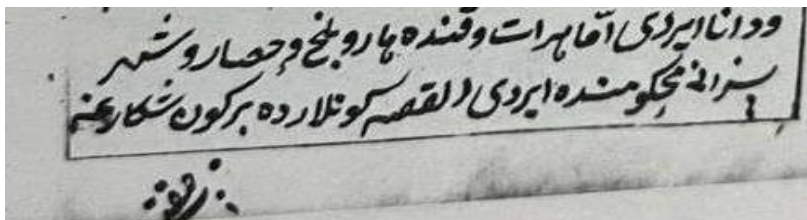 ودانا ایردی اما هرات وقنده هارو بلخ وحصار وشهر
سبزانی محکومنده ایردی القصه کونلارده برکون شکارغه